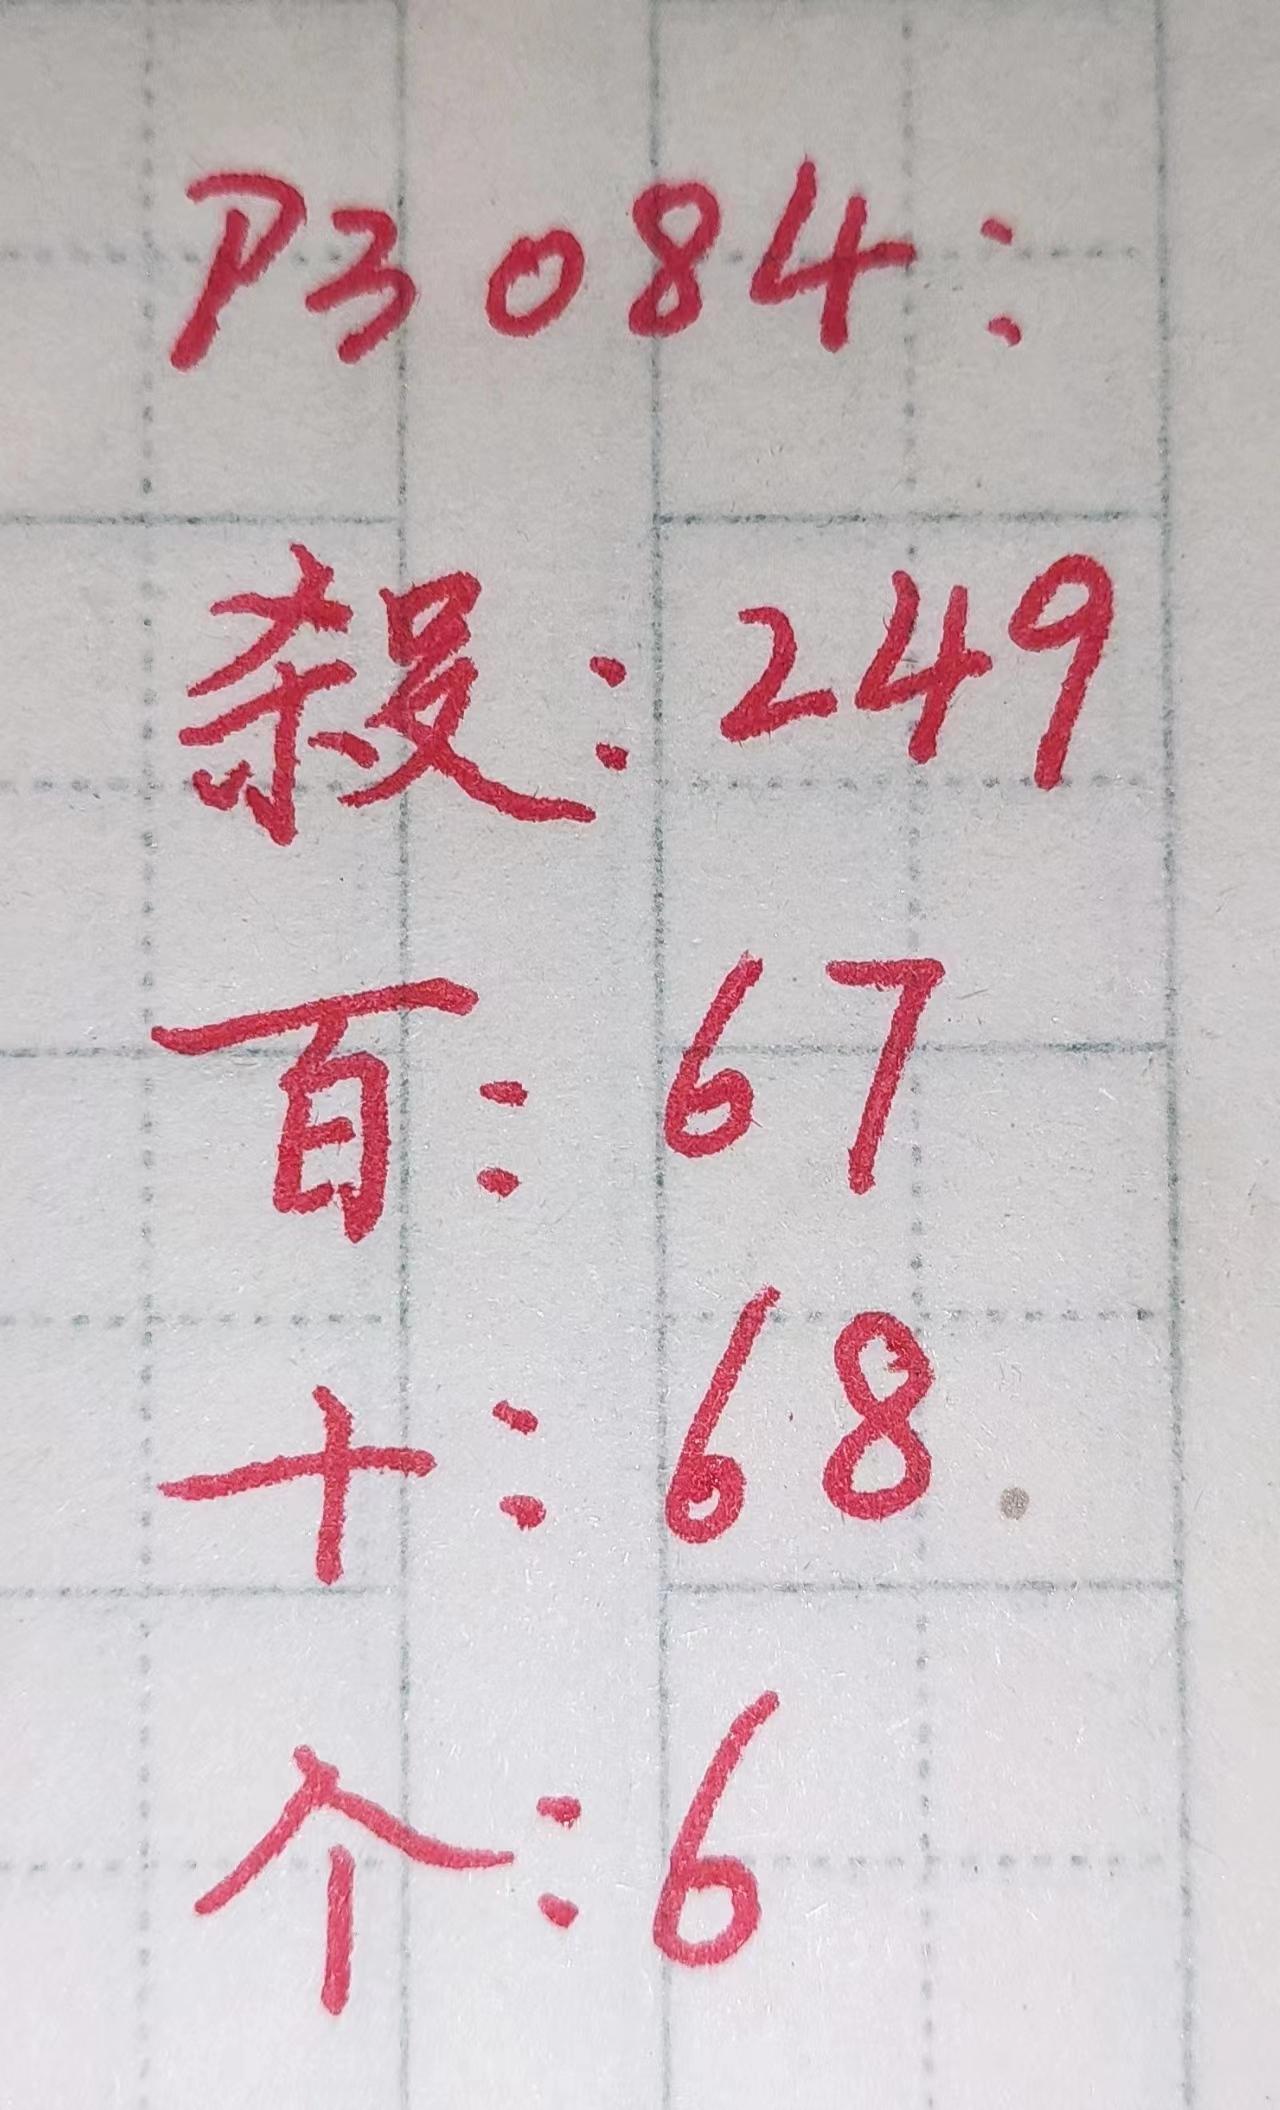 P3 084:
殺: 249
百: 67
十: 68
个: 6